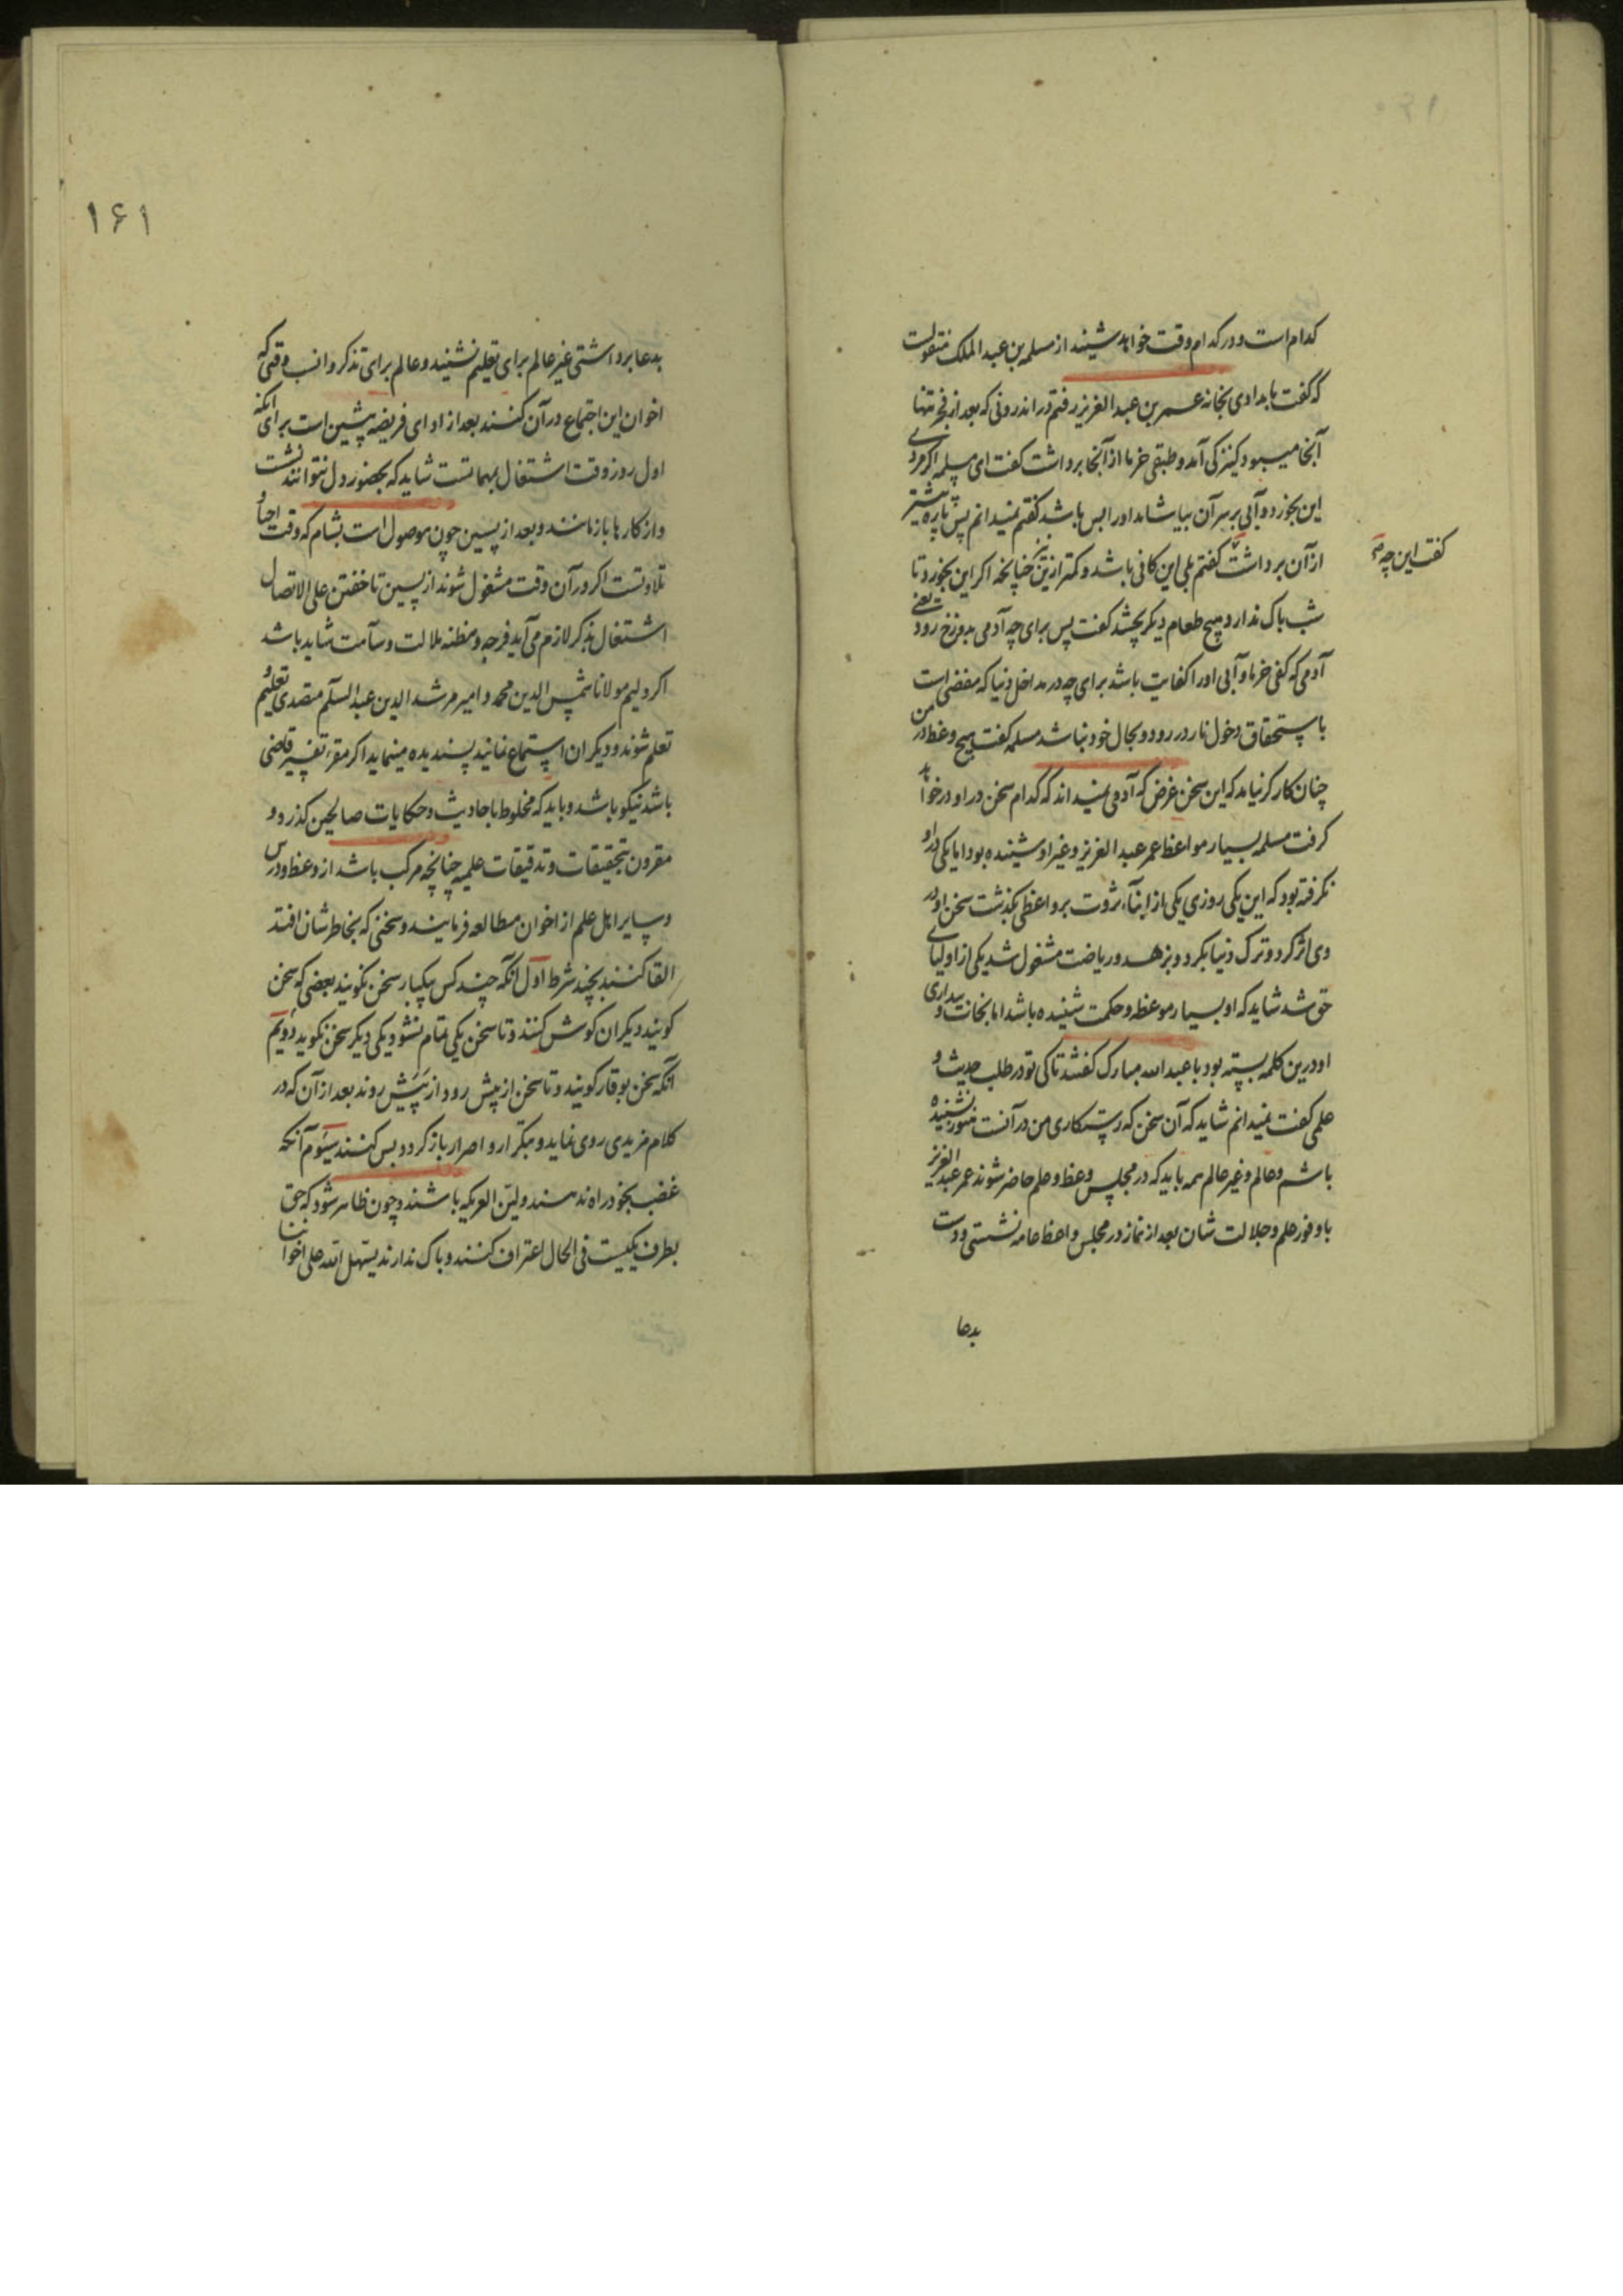 کدام است و در کدام وقت خواهد شنید از مسلمه بن عبد الملک منقولست
که گفت بامدادی بخانه عمر بن عبد العزیز رفتم در اندرونی که بعد از فجر تنها
آنجا میبود کنیزکی آمد و طبقی خرما از آنجا برداشت گفت ای مسلمه اگر مردی
این بخورد و آبی بر سر آن بیاشامد او را بس باشد گفتم نمیدانم پس پاره بیشتر
از آن برداشت گفتم بلی این کافی باشد و کمتر ازین نیز چنانچه اگر این بخورد تا
گفت این چه صح
شب باک ندارد و هیچ طعام دیگر نچشد گفت پس برای چه آدمی بدوزخ رود یعنی
آدمی که کفی خرما و آبی او را کفایت باشد برای چه در مداخل دنیا که مفضی است
باستحقاق دخول نار در رود و بحال خود نباشد مسلمه گفت هیچ وعظ در من
چنان کارگر نیامد که این سخن غرض که آدمی نمیداند که کدام سخن در او در خواهد
گرفت مسلمه بسیار مواعظ عمر عبد العزیز و غیر او شنیده بود اما یکی در او
نگرفته بود که این یکی روزی یکی از ابناء ثروت بر واعظی بگذشت سخن او در
وی اثر کرد و ترک دنیا بکرد و بزهد و ریاضت مشغول شد یکی از اولیای
حق شد شاید که او بسیار موعظه و حکمت شنیده باشد اما نجات و بیداری
او درین کلمه بسته بود با عبد الله مبارک گفتند تا کی تو در طلب حدیث و
علمی گفت نمیدانم شاید که آن سخن که رستگاری من در آنست هنوز نشنیده
باشم و عالم و غیر عالم همه باید که در مجلس وعظ و علم حاضر شوند عمر عبد العزیز
با وفور علم و جلالت شان بعد از نماز در مجلس واعظ عامه نشستی و دست
بدعا
۱۶۱
بدعا برداشتی غیر عالم برای تعلیم نشیند و عالم برای تذکر و انسب وقتی که
اخوان این اجتماع در آن کنند بعد از ادای فریضه پیشین است برای آنکه
اول روز وقت اشتغال بمهماتست شاید که بحضور دل نتوانند نشست
و از کارها بازمانند و بعد از پسین چون موصول است بشام که وقت احیا و
تلاوتست اگر در آن وقت مشغول شوند از پسین تا خفتن علی الاتصال
اشتغال بذکر لازم می آید فرجه و مظنه ملالت و سآمت شاید باشد
اگر ولیم مولانا شمس الدین محمد و امیر مرشد الدین عبد السلم متصدی تعلیم و
تعلم شوند و دیگران استماع نمایند پسندیده مینماید اگر مقرء تفسیر قاضی
باشد نیکو باشد و باید که مخلوط باحادیث و حکایات صالحین گذرد و
مقرون بتحقیقات و تدقیقات علمیه چنانچه مرکب باشد از وعظ و درس
و سایر اهل علم از اخوان مطالعه فرمایند و سخنی که بخاطرشان افتد
القا کنند بچند شرط اول آنکه چند کس بیکبار سخن نگویند بعضی که سخن
گویند دیگران گوش کنند و تا سخن یکی تمام نشود یکی دیگر سخن نگوید دویم
آنکه سخن بوقار گویند و تا سخن از پیش رود از پیش روند بعد از آن که در
کلام مزیدی روی نماید و بتکرار و اصرار باز گردد بس کنند سیوم آنکه
غضب بخود راه ندهند و لین العریکه باشند و چون ظاهر شود که حق
بطرف یکیست فی الحال اعتراف کنند و باک ندارند یستهل الله علی اخواننا